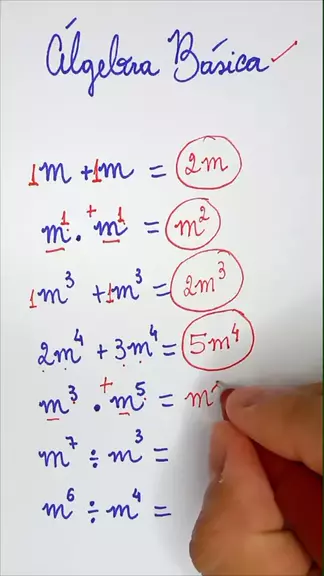 Álgebra Básica ✓
1m + 1m = 2m
m¹ · + m¹ = m²
1m³ + 1m³ = 2m³
2m⁴ + 3m⁴ = 5m⁴
m³ · + m⁵ = m
m⁷ ÷ m³ =
m⁶ ÷ m⁴ =